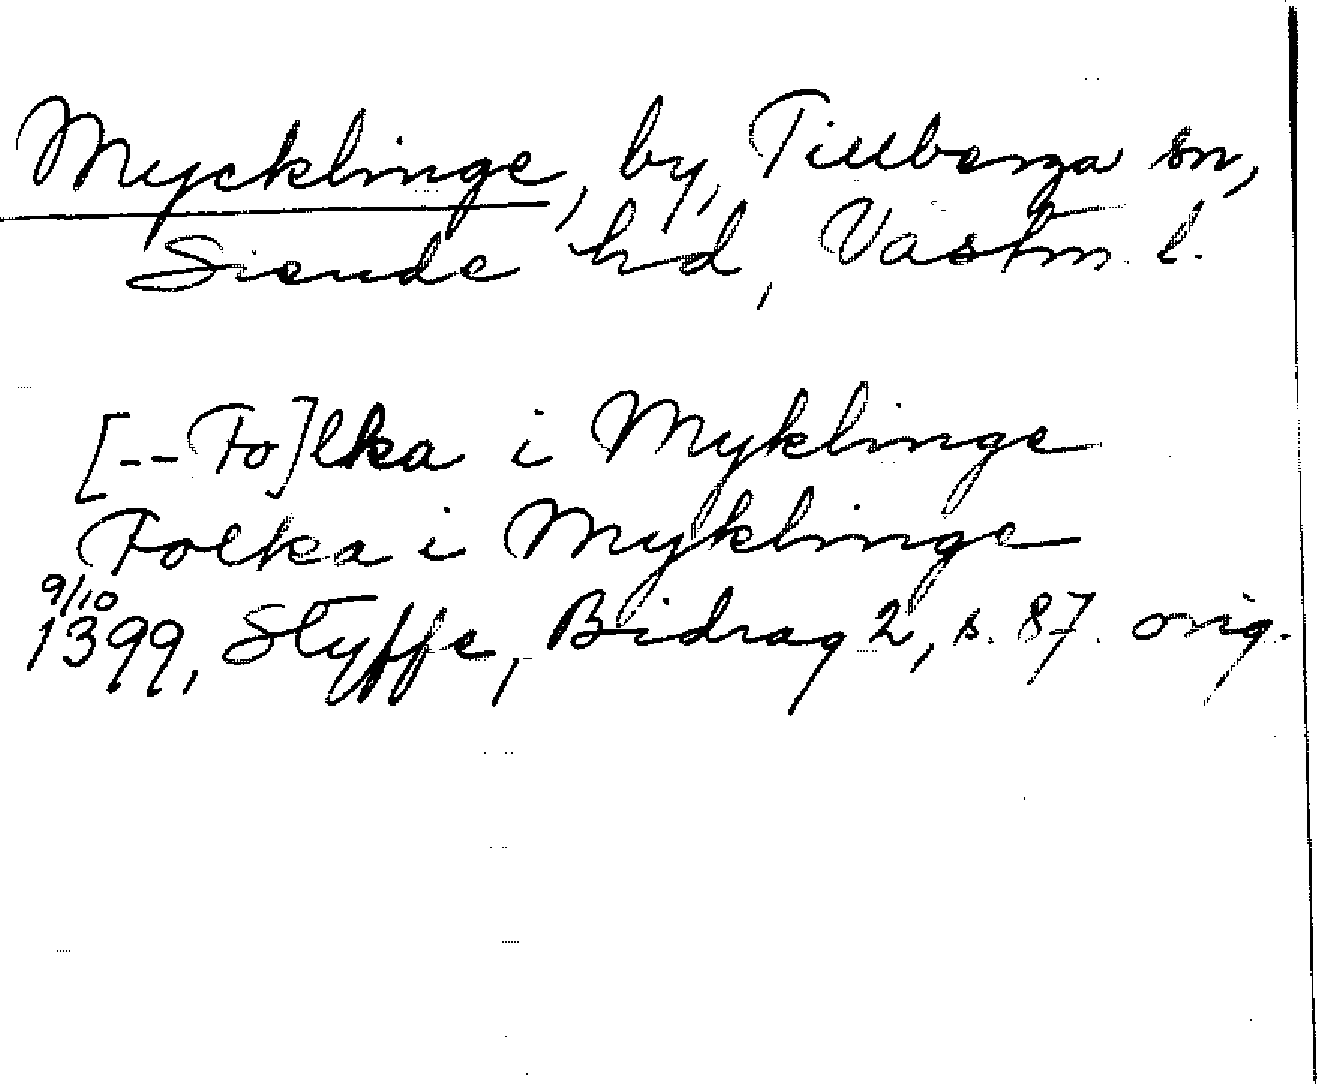 Mycklinge, by, Tillberga sn,
Siende hd, Västm. l.
[-- Fo]lka i Myklinge
Folka i Myklinge
9/10
1399, Styffe, Bidrag 2, s. 87. orig.